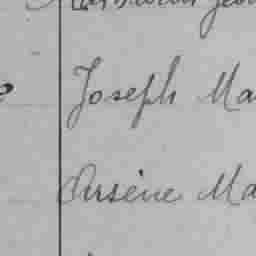 Joseph Ma
Arsène Ma